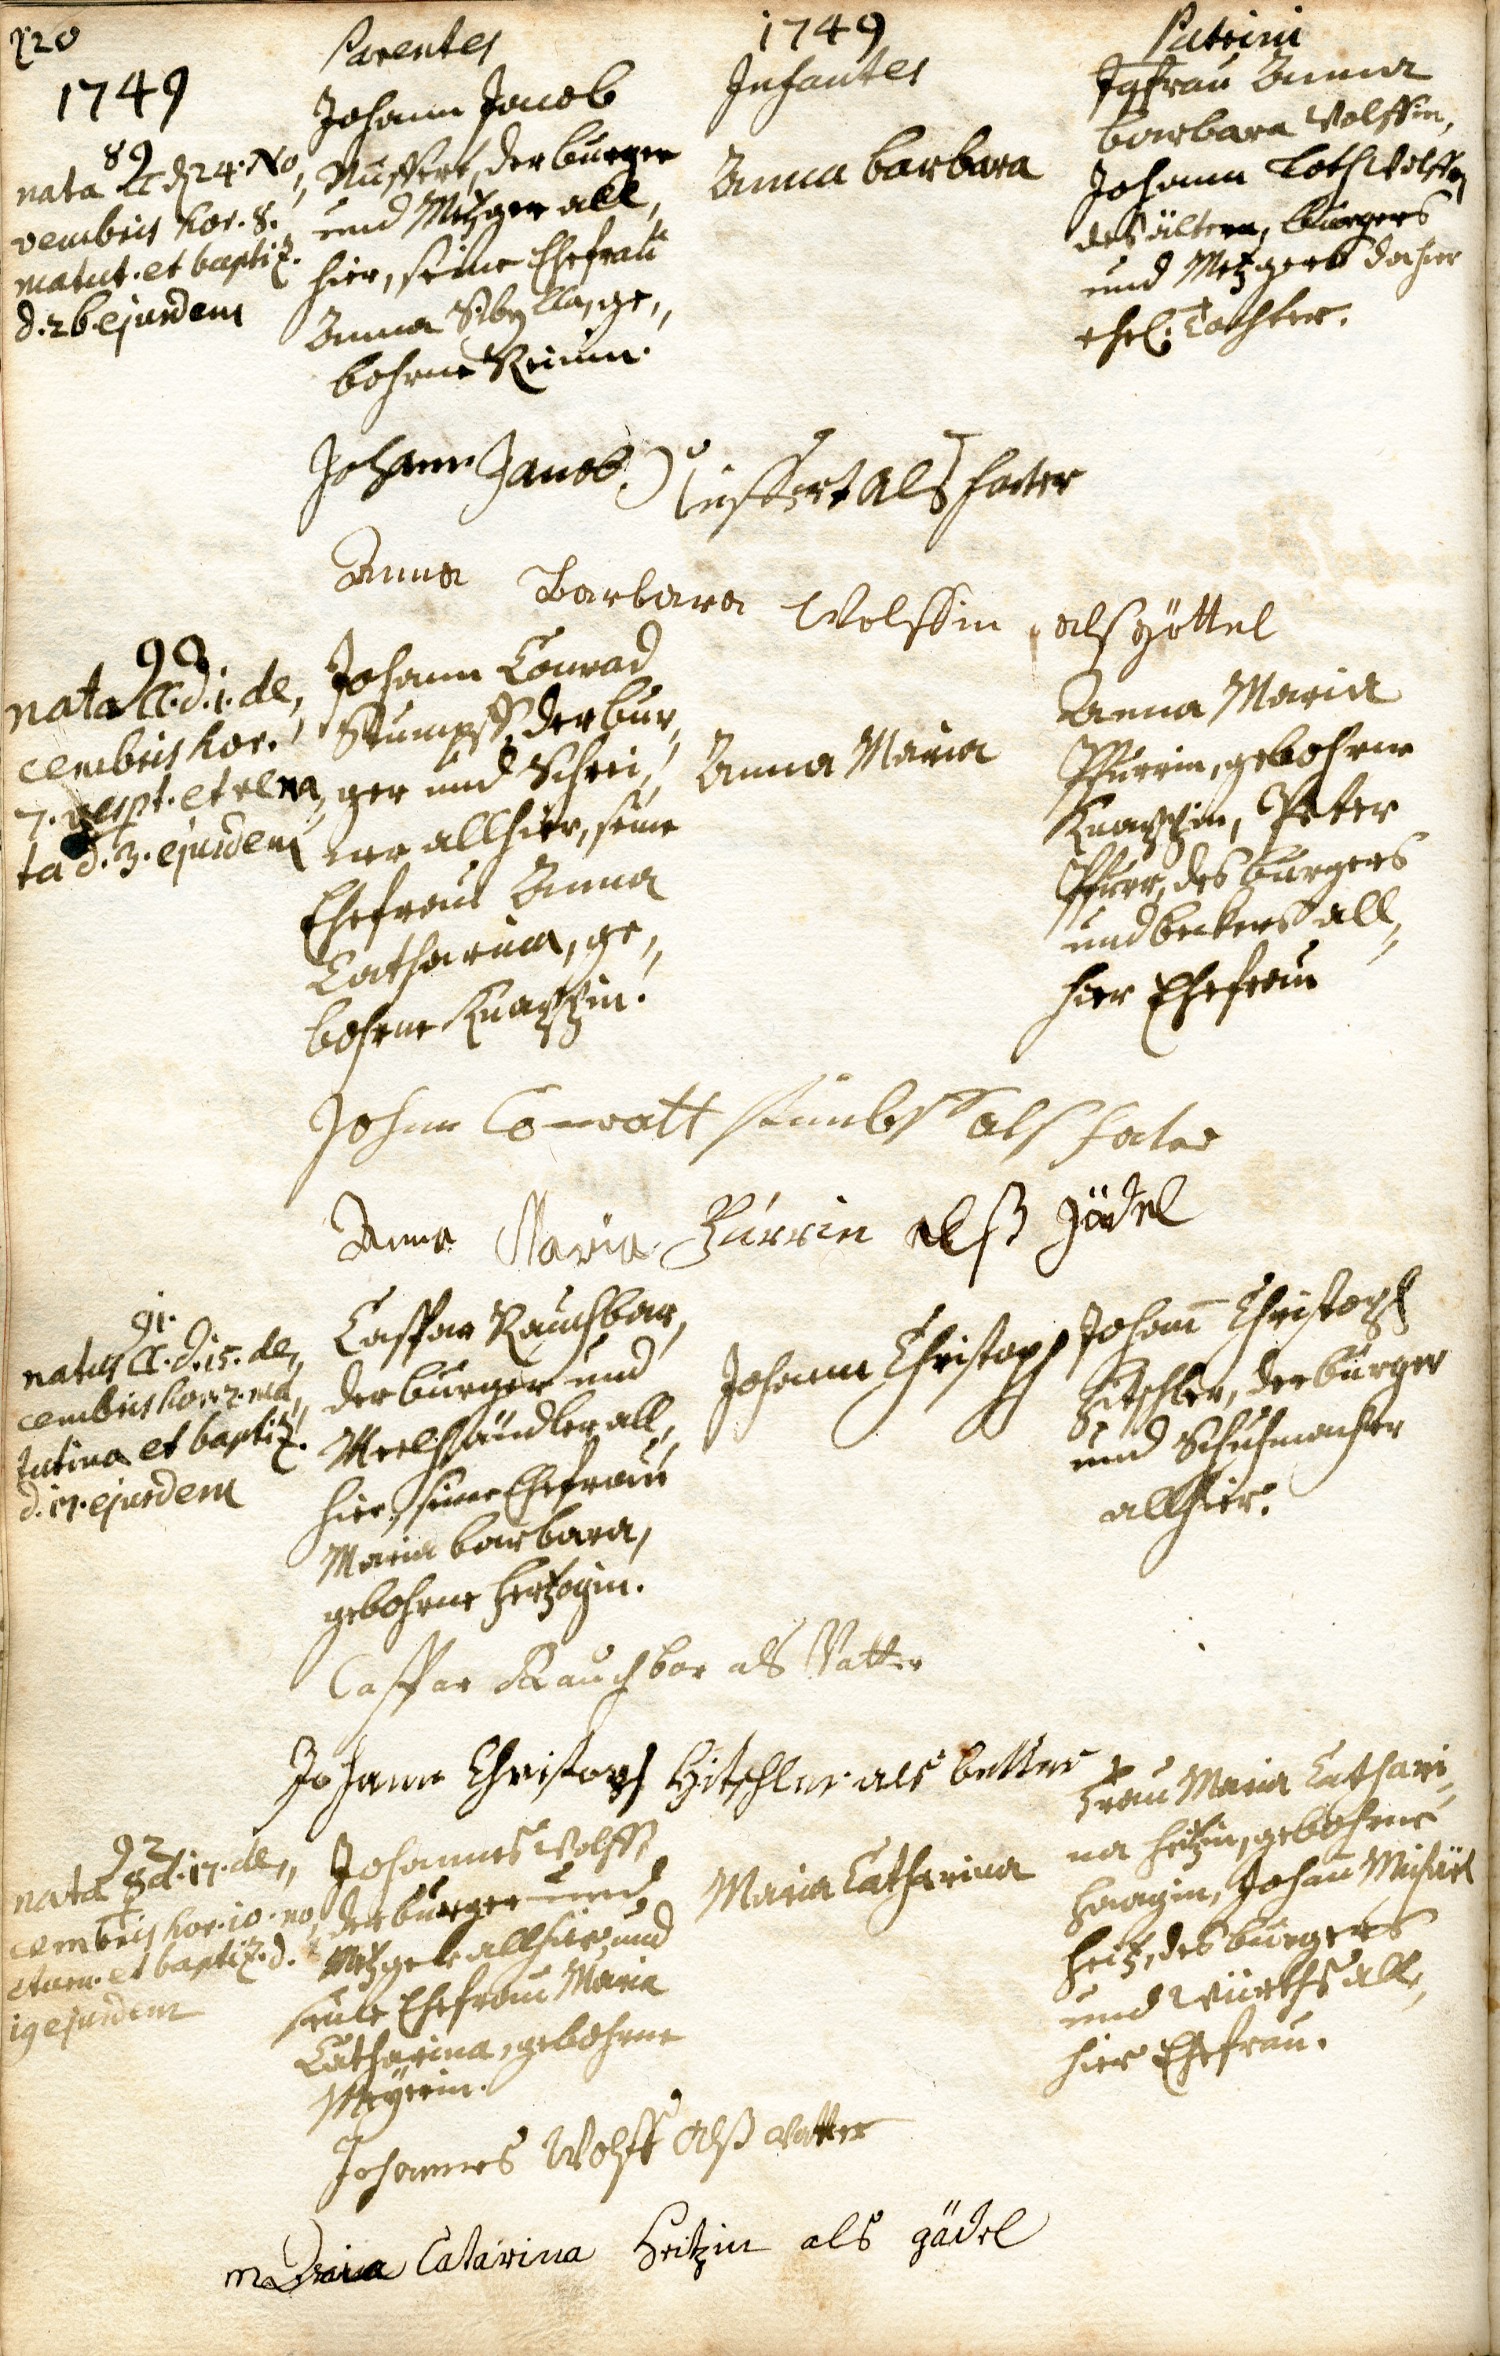 220
1749
Parentes
1749
Infantes
Patrini
89
nata d. 24. No,,
vembris hor. 8.
matut. et baptiz.
d. 26 ejusdem
Johann Jacob
Nüssert, der burger
und Metzger all,,
hier, seine Ehefrau
Anna Sibylla, ge,,
bohrne
Anna barbara
Jgfrau Anna
barbara Wolffin,
Johann Loth Wolffen
des ältern, burgers
und Metzgers dahier
ehel. Tochter.
Johann Jacob Nüssert als fatter
Anna Barbara Wolffin als göttel
90
nata d. 1. de,,
cembris hor.
7. vespt. et rena,,
ta d. 3. ejusdem
Johann Conrad
Stumpff, der bur,,
ger und Schrei,,
ner allhier, seine
Ehefrau Anna
Catharina, ge,,
bohrne Knatzin.
Anna Maria
Anna Maria
Pfurrin, gebohrne
Knatzin, Peter
Pfurr, des burgers
und beckers all,,
hier Ehefrau
Johan Conratt stumbff als fater
Anna Maria Furrin alß gödel
91.
natus d. 15. de,,
cembris hor. 2. ma,,
tutina et baptiz.
d. 17. ejusdem
Casspar Rauchbar,
der burger und
Meelhändler all,,
hier, seine Ehefrau
Maria barbara,
gebohrne Hertzogin.
Johann Christoph
Johann Christoph
Hitschler, der burger
und Schuhmacher
allhier.
Casspar Rauchbar als Vatter
Johann Christoph Hitschler als better
92
nata d. 17. de,,
cembris hor. 10. no,,
cturn. et baptiz. d.
19 ejusdem
Johannes Wolff,
der burger und
Metzger allhier, und
seine Ehefrau Maria
Catharina, gebohrne
Meyerin.
Maria Catharina
Frau Maria Cathari,,
na Heitzin, gebohrne
Haagin, Johan Michäel
Heitz, des burgers
und Würths all,,
hier Ehefrau.
Johannes Wolff alß vatter
maria Catarina Heitzin als gödel